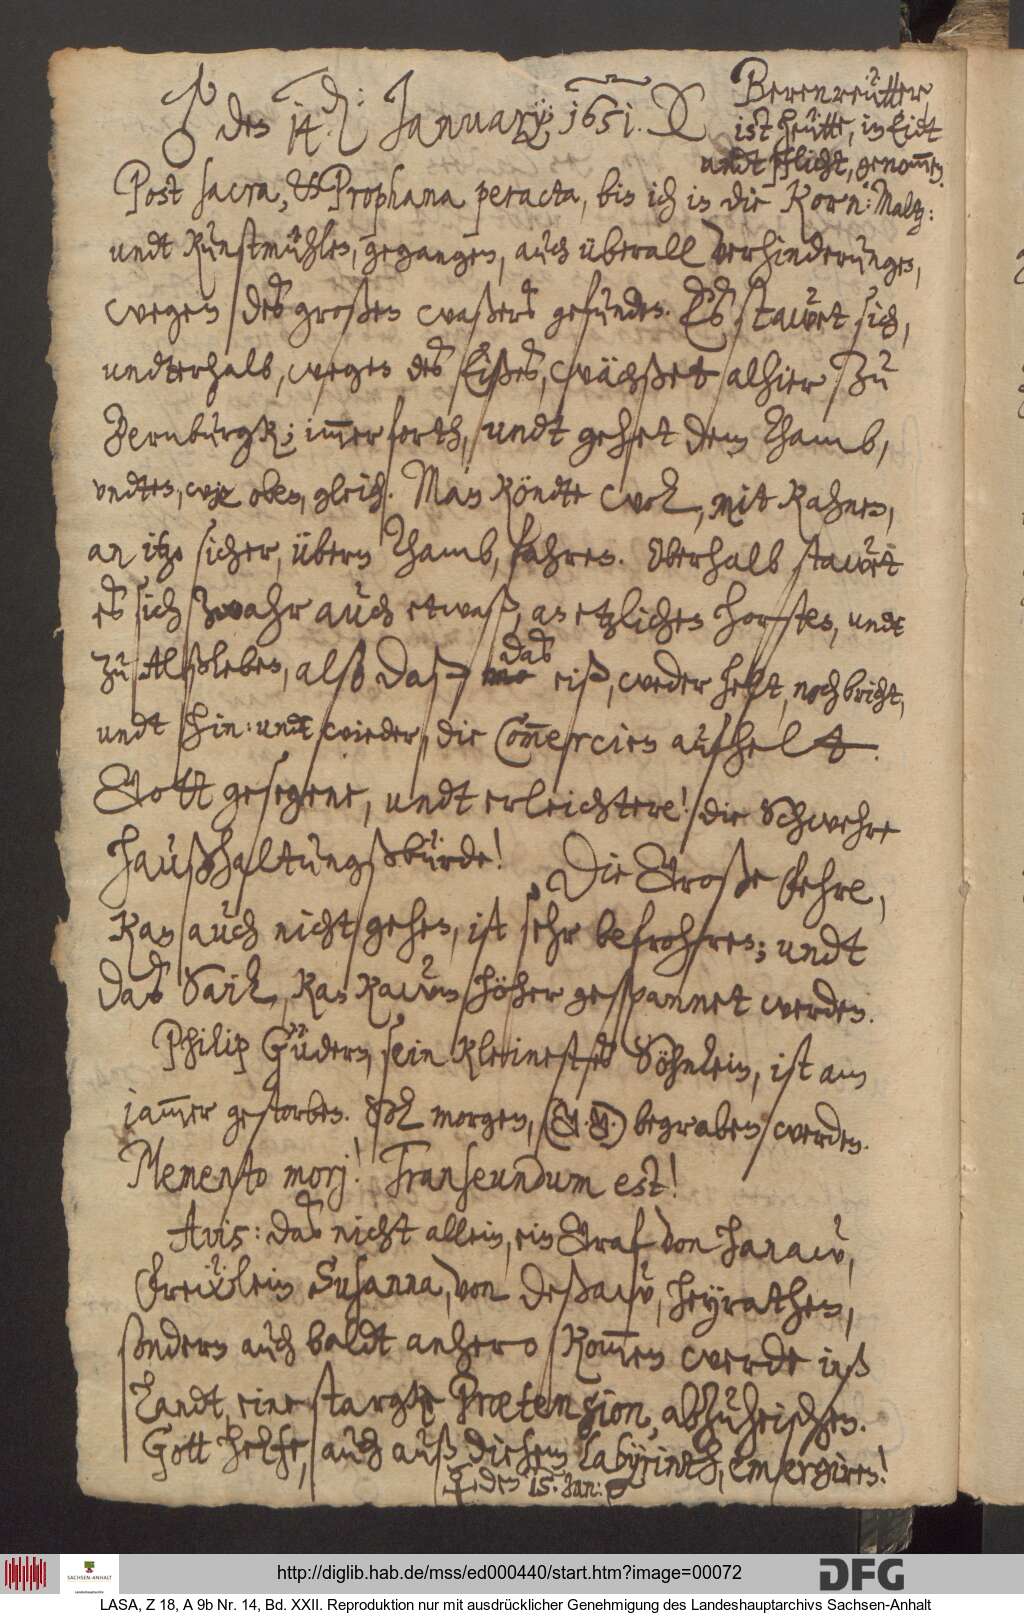 ♂ den 14. January: 1651.
Berenreütter,
ist heütte, in Eidt
undt pflicht, genommen.
Post sacra, & Prophana peracta, bin ich in die Korn: Maltz:
undt Kunstmühlen, gegangen, auch überall verhinderungen,
wegen des großen waßers gefunden. Es stawet sich,
undterhalb, wegen des Eißes, wächßet alhier zu
Bernburgk; immer forth, undt gehet dem Thamb,
undten, wie oben, gleich. Man köndte wol, mit Kahnen,
an itzo sicher, übern Thamb, fahren. Oberhalb stawet
es sich zwahr auch etwaß, an etzlichen horsten, undt
zu Alßleben, also daß das eiß, weder helt, noch bricht,
undt hin: undt wieder, die Commercien aufhelt.
Gott gesegene, undt erleichtere! die Schwehre
haußhaltungßbürde! Die Große Fehre,
kan auch nicht gehen, ist sehr befrohren; undt
das Sail, kan kawm höher gespannet werden.
Philip Güdern, sein kleinestes Söhnlein, ist am
jammer gestorben. Soll morgen, (G. G.) begraben werden.
Memento morj! Transeundum est!
Avis: das nicht allein, ein Graf von Hanaw,
Freẅlein Susanna, von Deßaw, heyrathen,
sondern auch baldt anhero kommen werde inß
Landt, eine stargke Prætension, abzuheischen.
Gott helfe, auch auß diesem labyrinth, emergiren!
☿ den 15. Jan:
http://diglib.hab.de/mss/ed000440/start.htm?image=00072
DFG
SACHSEN-ANHALT
LASA, Z 18, A 9b Nr. 14, Bd. XXII. Reproduktion nur mit ausdrücklicher Genehmigung des Landeshauptarchivs Sachsen-Anhalt